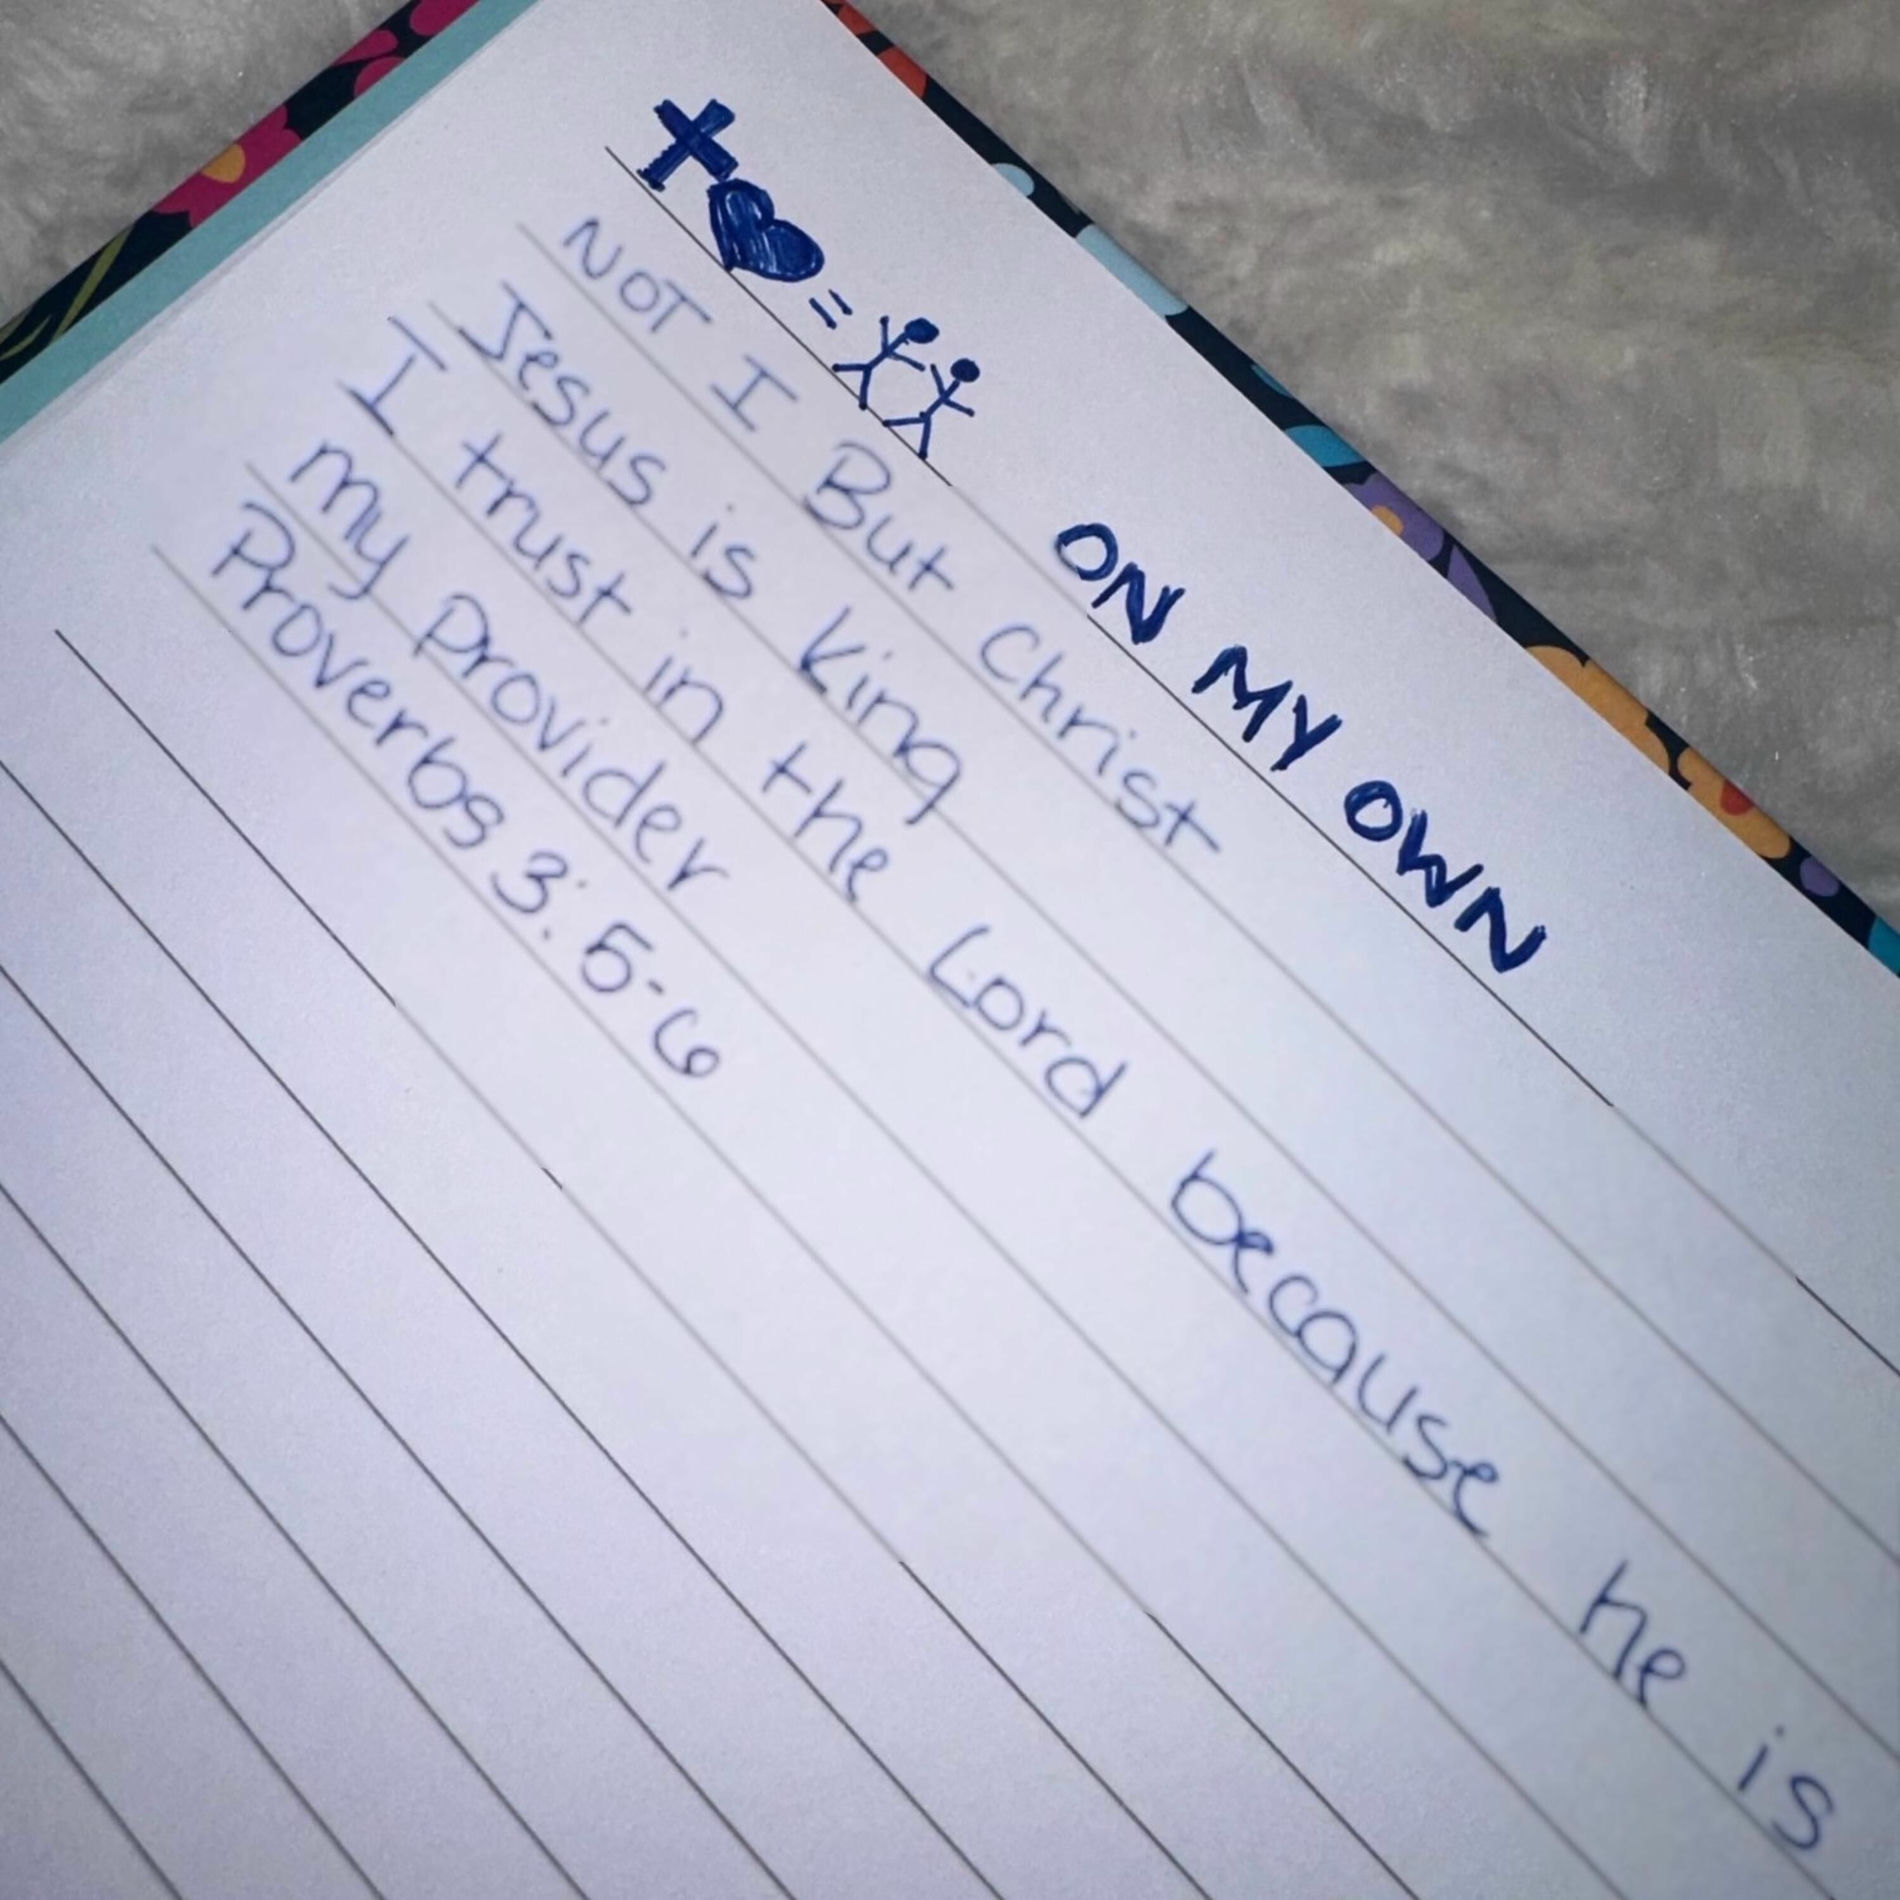 = ON MY OWN
NOT I But Christ
Jesus is King
I trust in the Lord because he is
my Provider
Proverbs 3:5-6